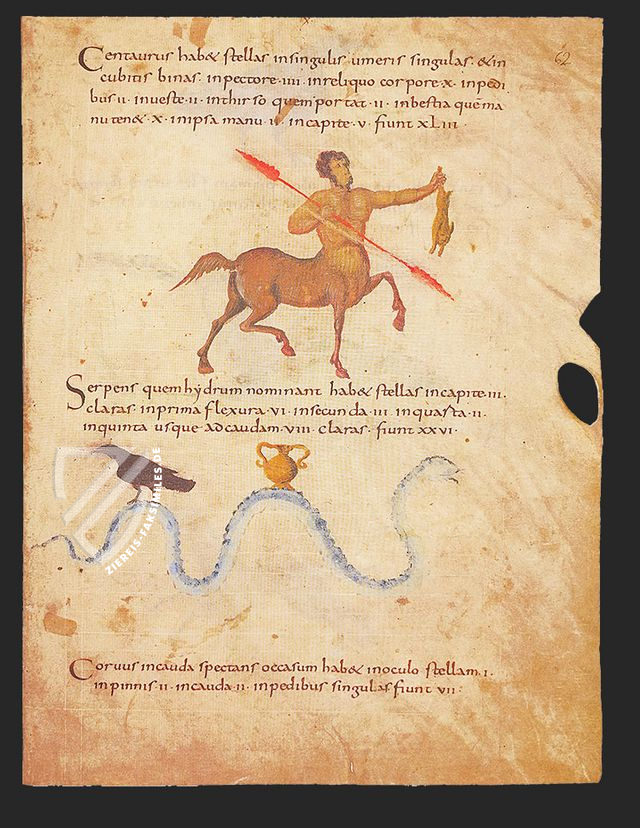 62
Centaurus hab& stellas insingulis umeris singulas · & in
cubitis binas · inpectore · IIII · inreliquo corpore · X · inpedi
bus · II · inueste · II · inthirso quemportat · II · inbestia quema
nu ten& · X · inipsa manu · II · incapite · V · fiunt XLIII ·
Serpens quem hydrum nominant hab& stellas incapite · III ·
claras · inprima flexura · VI · insecunda · III · inquasta · II ·
inquinta usque adcaudam · VIII · claras · fiunt XXVI ·
ZIEREIS-FAKSIMILES.DE
Coruus incauda spectans occasum hab& inoculo stellam · I ·
inpinnis · II · incauda · II · inpedibus singulas fiunt VII ·